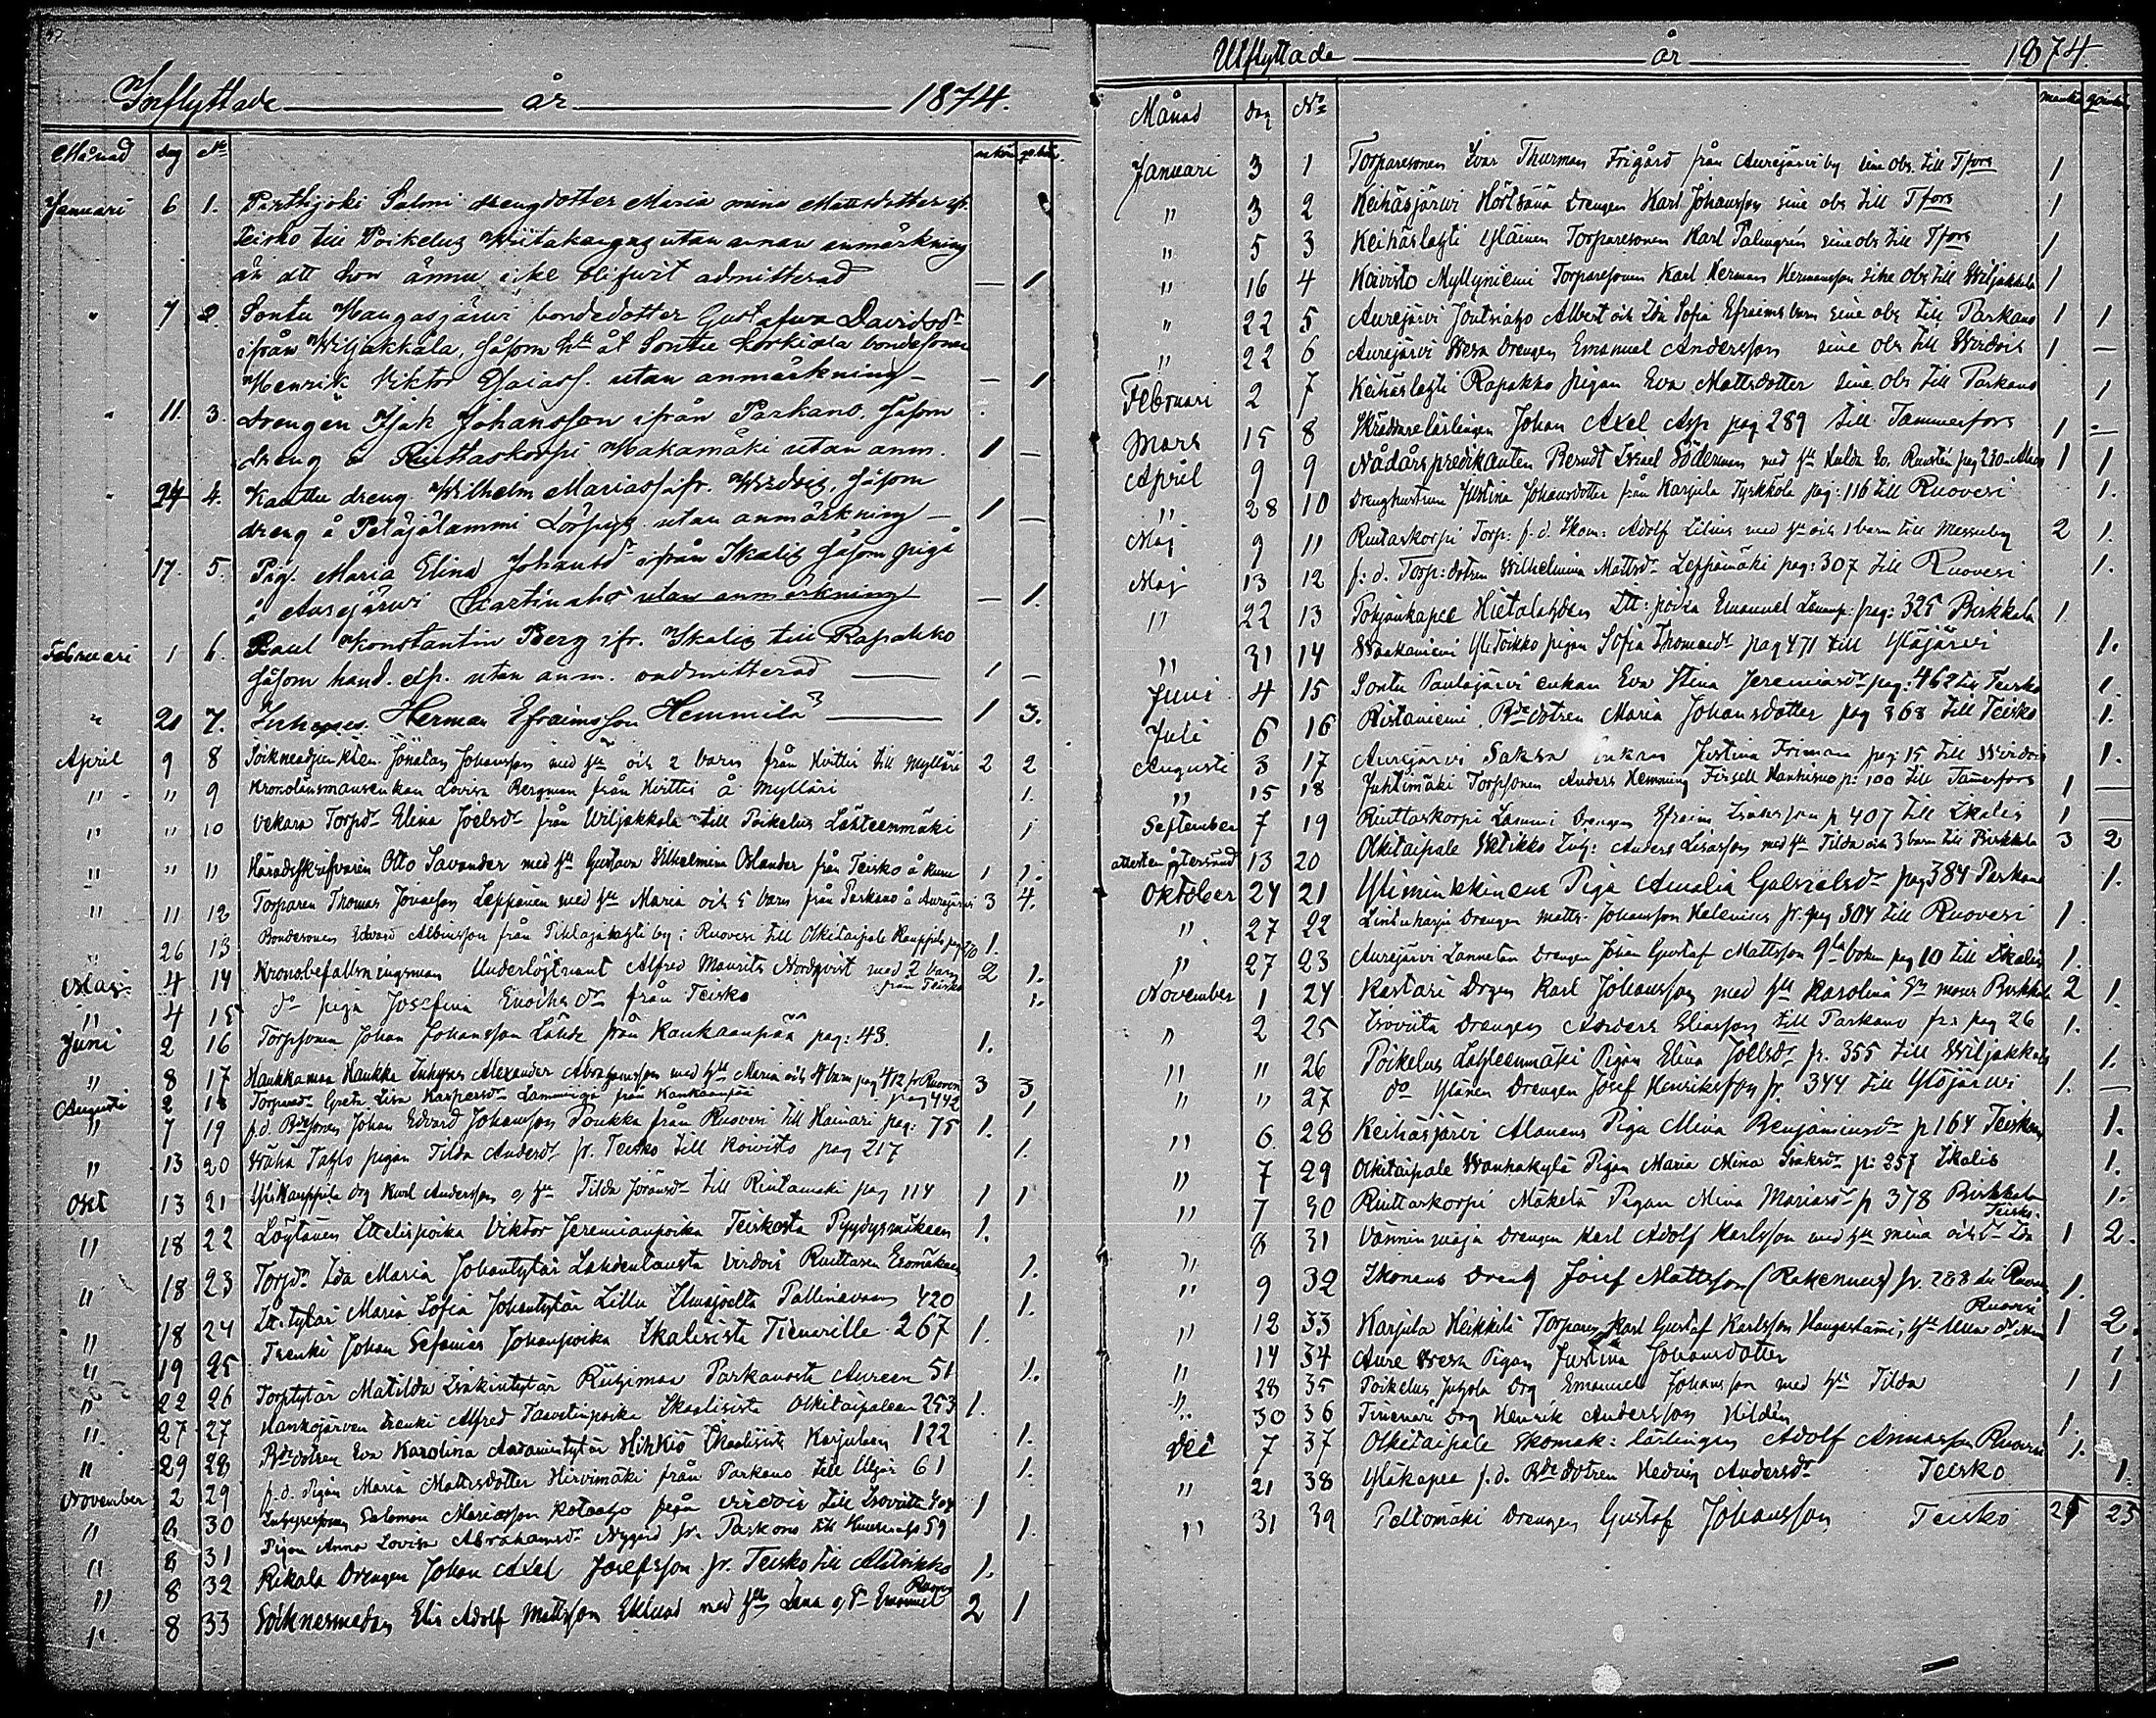 Inflyttade år 1874.
Månad dag No
Januari 6 1. Perttijoki Salomi drengdotter Maria mina Mattsdotter
Teisko till Poikelus Wiitakangas utan annan anmärkning
än att hon ännu icke blifwit admitterad — 1
" 7 2. Sontu Hangasjärwi bondedotter Gustafwa Davidsdr
ifrån Wiljakkala, såsom hu åt Sontu Korkiala bondesonen
Henrik Viktor Esaiass. utan anmärkning — — 1
" 11. 3. Drengen Isak Johansson ifrån Parkano, såsom
dreng å Riuttaskorpi Hakamäki utan anm. 1 —
" 24 4. dreng Wilhelm Mariass. ifr. Wirdois, såsom
dreng å Petäjälammi utan anmärkning — 1 —
17. 5. Pig. Maria Elina Johansdr ifrån Ikalis såsom piga
å Aurejärwi utan anmärkning — 1.
Februari 1 6. Konstantin Berg ifr. Ikalis till Rapakko
såsom hand. utan anm. admitterad — 1 —
" 20 7. Inhyses Herman Efraimsson Hemmilä — 1 3.
April 9 8 Jonatan Johansson med hu och 2 barn från Hvittis till Mylläri 2 2
" " 9 Kronolänsmansenkan Lovisa Bergman från Hvittis å Mylläri 1.
" " 10 Vekara Torpdr Elina Joelsdr från Wiljakkala till Poikelus Lähteenmäki 1
" " 11 Häradsskrifvaren Otto Savander med hu Gustava Wilhelmina Oslander från Teisko å Kuru 1 1.
" 11 12 Torparen Thomas Leppänen med hu Maria och 5 barn från Parkano å Aurejärvi 3 4.
" 26 13 Bondesonen Edvard Albinsson från by i Ruovesi till Olkitaipale Kauppila 1.
Maj 4 14 Kronobefallningsman Underlöjtnant Alfred Maurits Nordqvist med 2 barn från Teisko 2 1.
" 4 15 do piga Josefina Enochsdr från Teisko 1.
Juni 2 16 Torpsonen Johan Johansson Lähde från Kankaanpää pag: 43. 1.
" 8 17 Haukkamaa Haukka Inhyses Alexander Abrahamsson med hu Maria och 4 barn pag 412 fr Ruovesi 3 3
Augusti 2 18 Greta Lisa Kaspersdr från Kankaanpää pag 442 1
" 7 19 f.d. Bdesonen Johan Edvard Johansson Poukka från Ruovesi till Hainari pag: 75 1.
" 13 20 Wähä Tahlo pigan Tilda Andersdr fr. Teisko till Koivisto pag 217 1.
Okt 13 21 Ylikauppila drg Karl Andersson o hu Tilda till pag 114 1 1
" 18 22 Löytänen Ittelispoika Viktor Jeremianpoika Teiskosta 1.
" 18 23 Torpdr Ida Maria Johantytär virdois Riuttasen 1.
" 18 24 Itt. tytär Maria Sofia Johantytär Lilla 420 1.
" 19 25 Trenki Johan Sefanias Johanpoika Ikalisista 267 1.
" 22 26 Torptytär Matilda Isakintytär Riihimaa Parkanosta Aureen 51 1.
" 27 27 trenki Alfred Taavetinpoika Ikaalisista Olkitaipaleen 253 1.
" 29 28 Bdedotren Eva Karolina Aadamintytär Hihkiö Ikaalisista Karjulaan 122 1.
November 2 29 f.d. Pigan Maria Mattsdotter Hirvimäki från Parkano till 61 1.
" 30 Salomon Mariasson från virdois till Isoviita 1
" 8 31 Pigan Anna Lovisa Abrahamsdr Nygård fr. Parkano till 59 1.
" 8 32 Rikala Drengen Johan Axel Josefsson fr. Teisko till 1.
" 8 33 Elis Adolf Mattsson Eklund med hu Lena o Sn Emanuel Ruovesi 2 1
Utflyttade år 1874.
Månad dag No mank qvink
Januari 3 1 Torparesonen Ivar Thurman Frigård från Aurejärvi by sine obs. till Tfors 1
" 3 2 Keihäsjärvi Hörtsänä Drengen Karl Johansson sine obs till Tfors 1
" 5 3 Keihäslahti Yläinen Torparesonen Karl Palmgrén sine obs till Tfors 1
" 16 4 Koivisto Myllyniemi Torparesonen Karl Herman Hermansson sine obs till Wiljakkala 1
" 22 5 Aurejärvi Joutsiaho Albert och Ida Sofia Efraims barn sine obs till Parkano 1 1
" 22 6 Aurejärvi Wesa Drengen Emanuel Andersson sine obs till Wirdois 1 —
Februari 2 7 Keihäslahti Rapakko pigan Eva Mattsdotter sine obs till Parkano 1
Mars 15 8 Skräddarelärlingen Johan Axel Asp pag 289 till Tammerfors 1 —
April 9 9 Nådårspredikanten Berndt Israel Söderman med hu Hulda pag 230 1 1
" 28 10 Drenghustrun Justina Johansdotter från Karjula Tyrkkölä pag: 116 till Ruovesi 1.
Maj 9 11 Riutaskorpi Torp: f.d. Skom: Adolf Lilius med hu och 1 barn till Messuby 2 1.
Maj 13 12 f: d. Torp: dotren Wilhelmina Mattsdr Leppämäki pag: 307 till Ruovesi 1.
" 22 13 Pohjankapee Hietalahden Itt: poika Emanuel pag: 325 Birkkala 1.
" 31 14 pigan Sofia Thomasdr pag 471 till Ylöjärvi 1.
Juni 4 15 Sontu Paulajärvi enkan Eva Stina Jeremiasdr pag: 462 till Teisko 1.
Juli 6 16 Ristaniemi Bdedotren Maria Johansdotter pag 868 till Teisko 1.
Augusti 3 17 Aurejärvi Saksa enkan Justina Friman pag 15 till Wirdois 1.
" 15 18 Juhtimäki Torpsonen Anders Hemming p: 100 till Tamerfors 1 —
September 7 19 Riuttaskorpi Lammi Drengen Efraim Isaksson p 407 till Ikalis 1 —
attesten återsänd 13 20 Olkitaipale Inh: Anders Lisasson med hu Tilda och 3 barn till Birkkala 3 2
Oktober 24 21 Yliminkkinens Piga Amalia Gabrielsdr pag 384 Parkano 1.
" 27 22 Lintuharju Drengen Matts Johansson Helenius fr. pag 304 till Ruovesi 1.
" 27 23 Aurejärvi Drengen Johan Gustaf Mattsson gla boken pag 10 till Ikalis 1.
November 1 24 Kastari Drgen Karl Johansson med hu Karolina Birkkala 2 1.
" 2 25 Isoviita Drengen Anders Eliasson till Parkano fr. pag 26 1.
" " 26 Poikelus Lähteenmäki Pigan Elina Joelsdr fr. 355 till Wiljakkala 1.
" " 27 do Ylänen Drengen Josef Henriksson fr. 344 till Ylöjärvi 1. —
" 6. 28 Keihäsjärvi Alanens Piga Miina Benjaminsdr p 164 Teisko 1.
" 7 29 Olkitaipale Wanhakylä Pigan Maria Mina Isaksdr p: 257 Ikalis 1.
" 7 30 Riuttaskorpi Mäkelä Pigan Mina Mariasdr p 378 Birkkala 1.
" 8 31 Vänninmaja Drengen Karl Adolf Karlsson med hu Mina och dr Ida Teisko. 1 2.
" 9 32 Ikonens Dreng Josef Mattsson (Rakennus) fr. 288 till Ruovesi 1.
" 12 33 Karjula Heikkilä Torparen Karl Gustaf Karlsson Ruovesi 1 2.
" 14 34 Aure Wesa Pigan Justina Johansdotter 1
" 28 35 Poikelus Juhola Drg Emanuel Johansson med hu Tilda 1 1
" 30 36 Drg Henrik Andersson Hildén 1.
Dec 7 37 Olkitaipale Skomak: lärlingen Adolf Annasson Ruovesi 1.
" 21 38 Yläkapee f.d. Bdedotren Hedvig Andersdr Teisko 1.
" 31 39 Peltomäki Drengen Gustaf Johansson Teisko 25 25